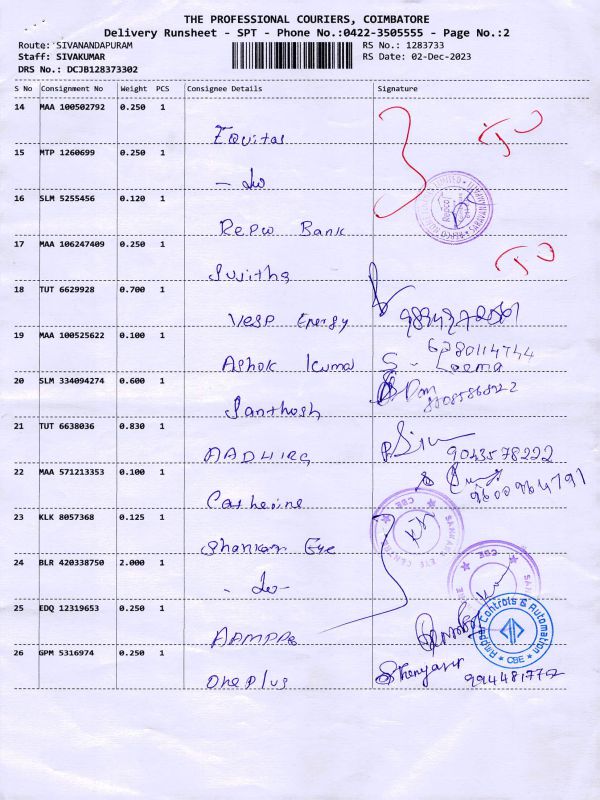 THE PROFESSIONAL COURIERS, COIMBATORE
Delivery Runsheet - SPT - Phone No.:0422-3505555 - Page No.:2
Route: SIVANANDAPURAM RS No.: 1283733
Staff: SIVAKUMAR RS Date: 02-Dec-2023
DRS No.: DCJB128373302
S No Consignment No Weight PCS Consignee Details Signature
14 MAA 100502792 0.250 1
Equitas
15 MTP 1260699 0.250 1
- do
16 SLM 5255456 0.120 1
Repco Bank
17 MAA 106247409 0.250 1
Sujitha
18 TUT 6629928 0.700 1
Vesp Energy
19 MAA 100525622 0.100 1
6380114744
Ashok Kumar
20 SLM 334094274 0.600 1
Santhosh
21 TUT 6638036 0.830 1
9043578222
AADHIRA
22 MAA 571213353 0.100 1
9600964791
Catherine
23 KLK 8057368 0.125 1
Shankar Eye
24 BLR 420338750 2.000 1
- do -
25 EDQ 12319653 0.250 1
Controls & Automation
CBE
26 GPM 5316974 0.250 1
9944817752
OnePlus